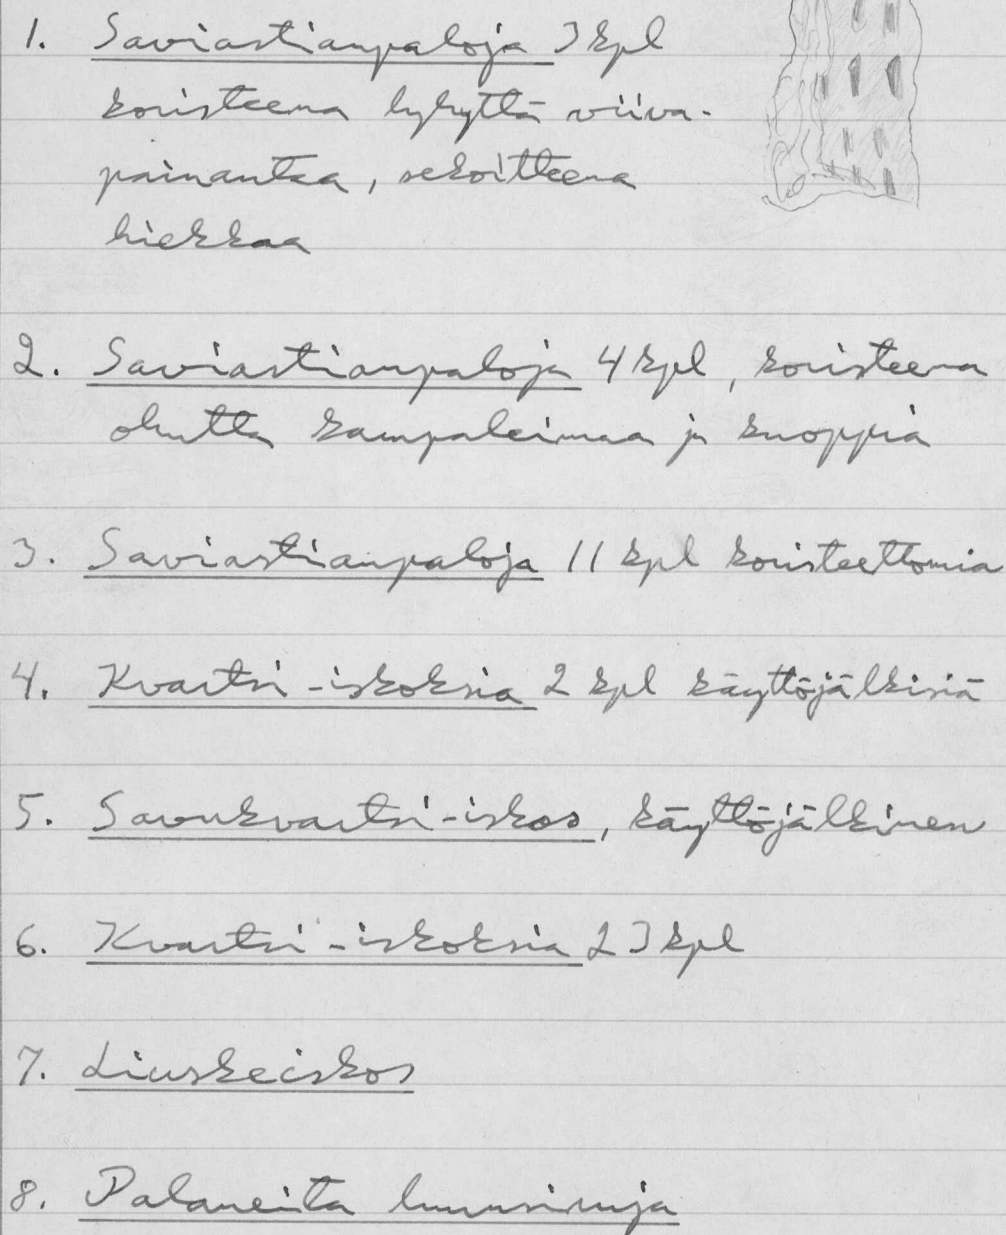 1. Saviastianpaloja 3 kpl
koristeena lyhyttä viiva-
painantaa, sekoitteena
hiekkaa
2. Saviastianpaloja 4 kpl, koristeena
ohutta kampaleimaa ja kuoppia
3. Saviastianpaloja 11 kpl koristeettomia
4. Kvartsi-iskoksia 2 kpl käyttöjälkisiä
5. Savukvartsi-iskos, käyttöjälkinen
6. Kvartsi-iskoksia 23 kpl
7. Liuskeiskos
8. Palaneita luunsiruja